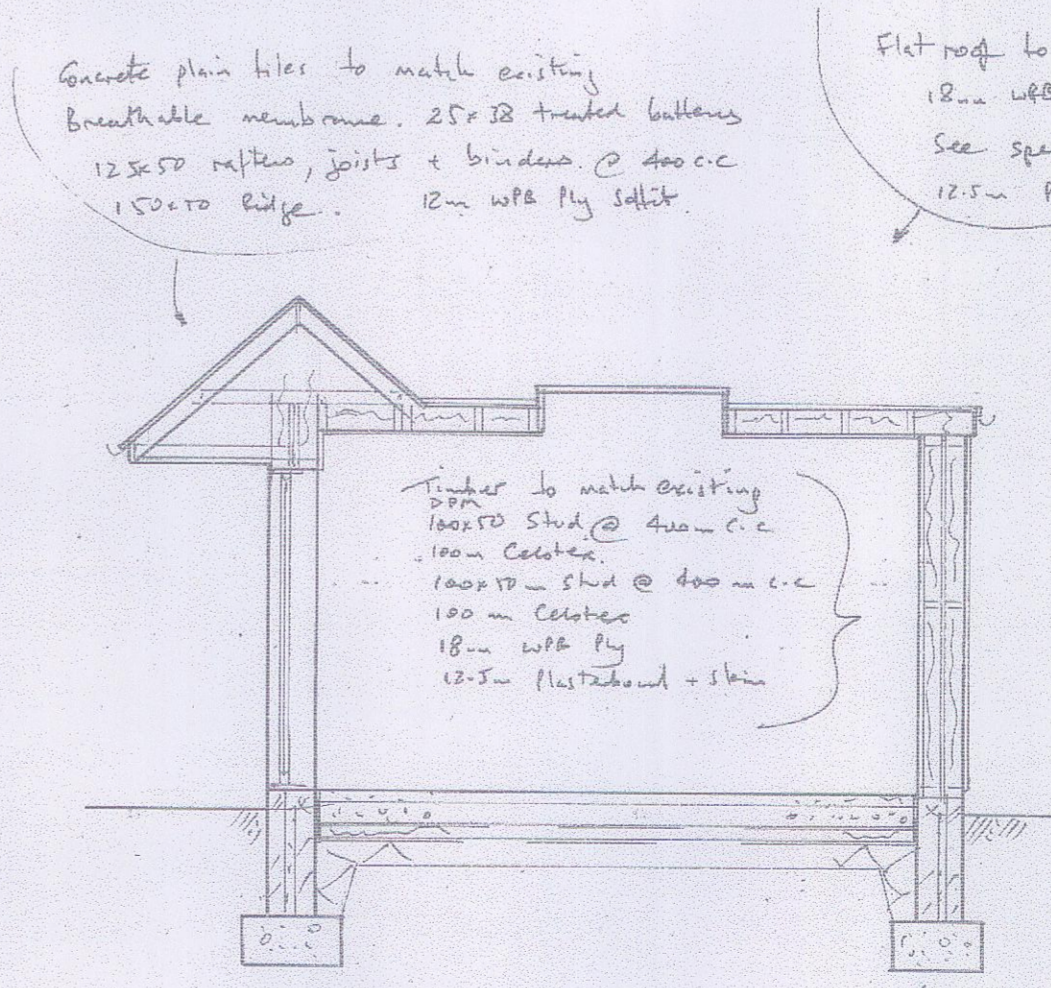 Concrete plain tiles to match existing
Breathable membrane. 25x38 treated battens
125x50 rafters, joists + binders. @ 400 c.c
150x50 Ridge. 12m WPB Ply Soffit.
Flat roof to
18mm WPB
See spe
12.5m P
Timber to match existing
DPM
100x50 Stud @ 400m c.c
100m Celotex.
100x50m Stud @ 400m c.c
100m Celotex
18mm WPB Ply
12.5m Plasterboard + Skim